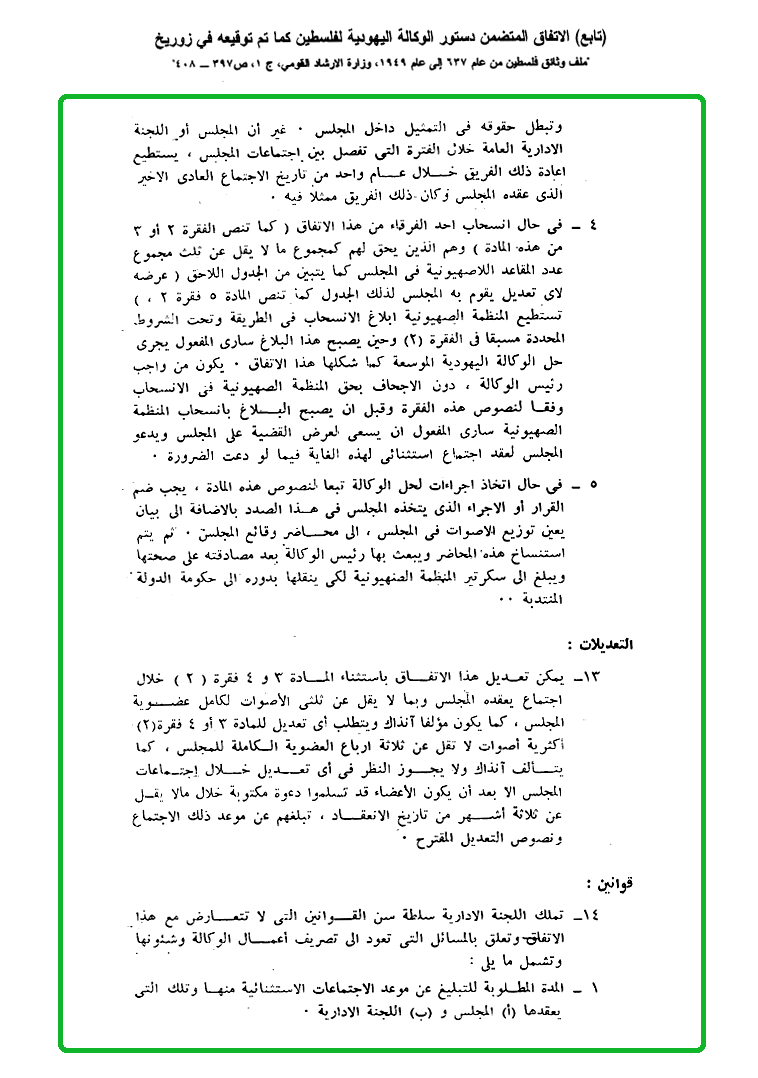 (تابع) الاتفاق المتضمن دستور الوكالة اليهودية لفلسطين كما تم توقيعه في زوريخ
"ملف وثائق فلسطين من عام ٦٣٧ إلى عام ١٩٤٩، وزارة الارشاد القومي، ج ١، ص ٣٩٧ – ٤٠٨"
وتبطل حقوقه فى التمثيل داخل المجلس ٠ غير أن المجلس أو اللجنة
الادارية العامة خلال الفترة التى تفصل بين اجتماعات المجلس ، يستطيع
اعادة ذلك الفريق خلال عام واحد من تاريخ الاجتماع العادى الاخير
الذى عقده المجلس وكان ذلك الفريق ممثلا فيه ٠
٤ ـ فى حال انسحاب احد الفرقاء من هذا الاتفاق ( كما تنص الفقرة ٢ أو ٣
من هذه المادة ) وهم الذين يحق لهم كمجموع ما لا يقل عن ثلث مجموع
عدد المقاعد اللاصهيونية فى المجلس كما يتبين من الجدول اللاحق ( عرضه
لاى تعديل يقوم به المجلس لذلك الجدول كما تنص المادة ٥ فقرة ٢ ، )
تستطيع المنظمة الصهيونية ابلاغ الانسحاب فى الطريقة وتحت الشروط
المحددة مسبقا فى الفقرة (٢) وحين يصبح هذا البلاغ سارى المفعول يجرى
حل الوكالة اليهودية الموسعة كما شكلها هذا الاتفاق ٠ يكون من واجب
رئيس الوكالة ، دون الاجحاف بحق المنظمة الصهيونية فى الانسحاب
وفقا لنصوص هذه الفقرة وقبل ان يصبح البلاغ بانسحاب المنظمة
الصهيونية سارى المفعول ان يسعى لعرض القضية على المجلس ويدعو
المجلس لعقد اجتماع استثنائى لهذه الغاية فيما لو دعت الضرورة ٠
٥ ـ فى حال اتخاذ اجراءات لحل الوكالة تبعا لنصوص هذه المادة ، يجب ضم
القرار أو الاجراء الذى يتخذه المجلس فى هذا الصدد بالاضافة الى بيان
يعين توزيع الاصوات فى المجلس ، الى محاضر وقائع المجلس ٠ ثم يتم
استنساخ هذه المحاضر ويبعث بها رئيس الوكالة بعد مصادقته على صحتها
ويبلغ الى سكرتير المنظمة الصنهيونية لكى ينقلها بدوره الى حكومة الدولة
المنتدبة ٠٠
التعديلات :
١٣ـ يمكن تعديل هذا الاتفاق باستثناء المادة ٣ و ٤ فقرة ( ٢ ) خلال
اجتماع يعقده المجلس وبما لا يقل عن ثلثى الأصوات لكامل عضوية
المجلس ، كما يكون مؤلفا آنذاك ويتطلب أى تعديل للمادة ٣ أو ٤ فقرة(٢)
أكثرية أصوات لا تقل عن ثلاثة ارباع العضوية الكاملة للمجلس ، كما
يتألف آنذاك ولا يجوز النظر فى أى تعديل خلال إجتماعات
المجلس الا بعد أن يكون الأعضاء قد تسلموا دعوة مكتوبة خلال مالا يقل
عن ثلاثة أشهر من تاريخ الانعقاد ، تبلغهم عن موعد ذلك الاجتماع
ونصوص التعديل المقترح ٠
قوانين :
١٤ـ تملك اللجنة الادارية سلطة سن القوانين التى لا تتعارض مع هذا
الاتفاق وتعلق بالمسائل التى تعود الى تصريف أعمال الوكالة وشئونها
وتشمل ما يلى :
١ ـ المدة المطلوبة للتبليغ عن موعد الاجتماعات الاستثنائية منها وتلك التى
يعقدها (أ) المجلس و (ب) اللجنة الادارية ٠